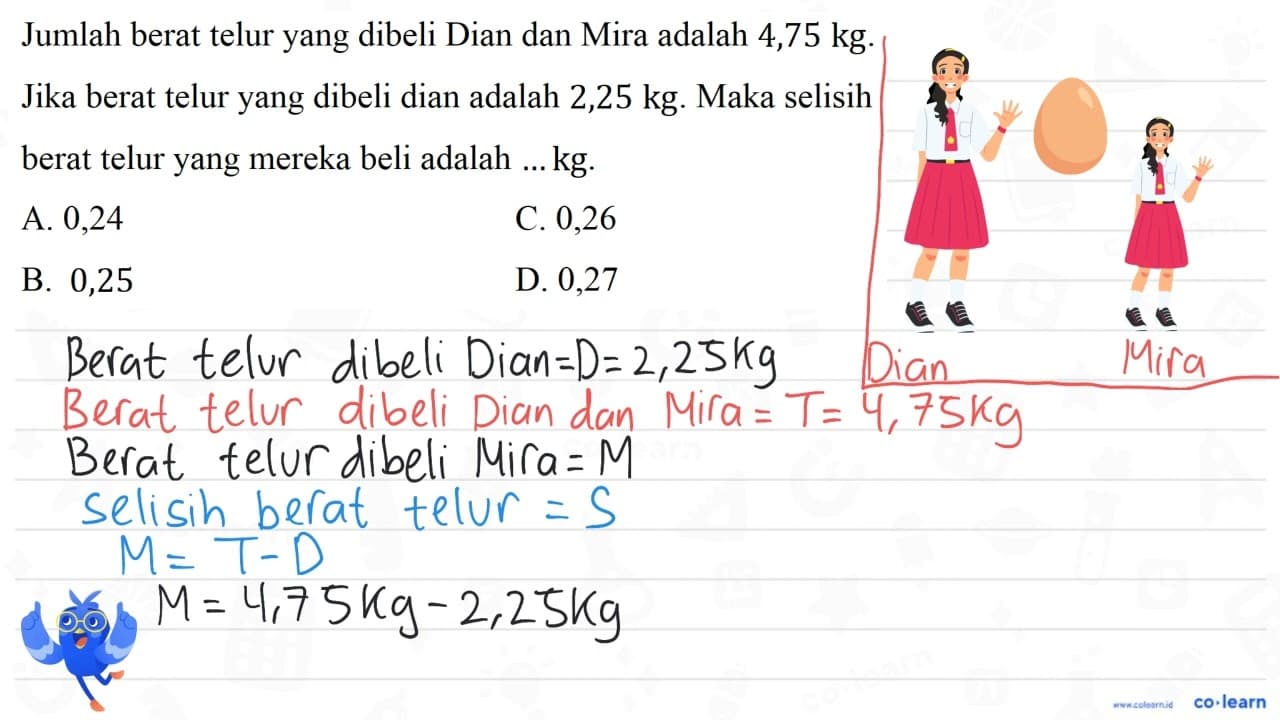 Jumlah berat telur yang dibeli Dian dan Mira adalah 4,75 kg.
Jika berat telur yang dibeli dian adalah 2,25 kg. Maka selisih
berat telur yang mereka beli adalah ... kg.
A. 0,24
C. 0,26
B. 0,25
D. 0,27
Dian
Mira
Berat telur dibeli Dian=D= 2,25Kg
Berat telur dibeli Dian dan Mira = T= 4,75Kg
Berat telur dibeli Mira = M
selisih berat telur = S
M = T - D
M = 4,75Kg - 2,25Kg
www.colearn.id co·learn